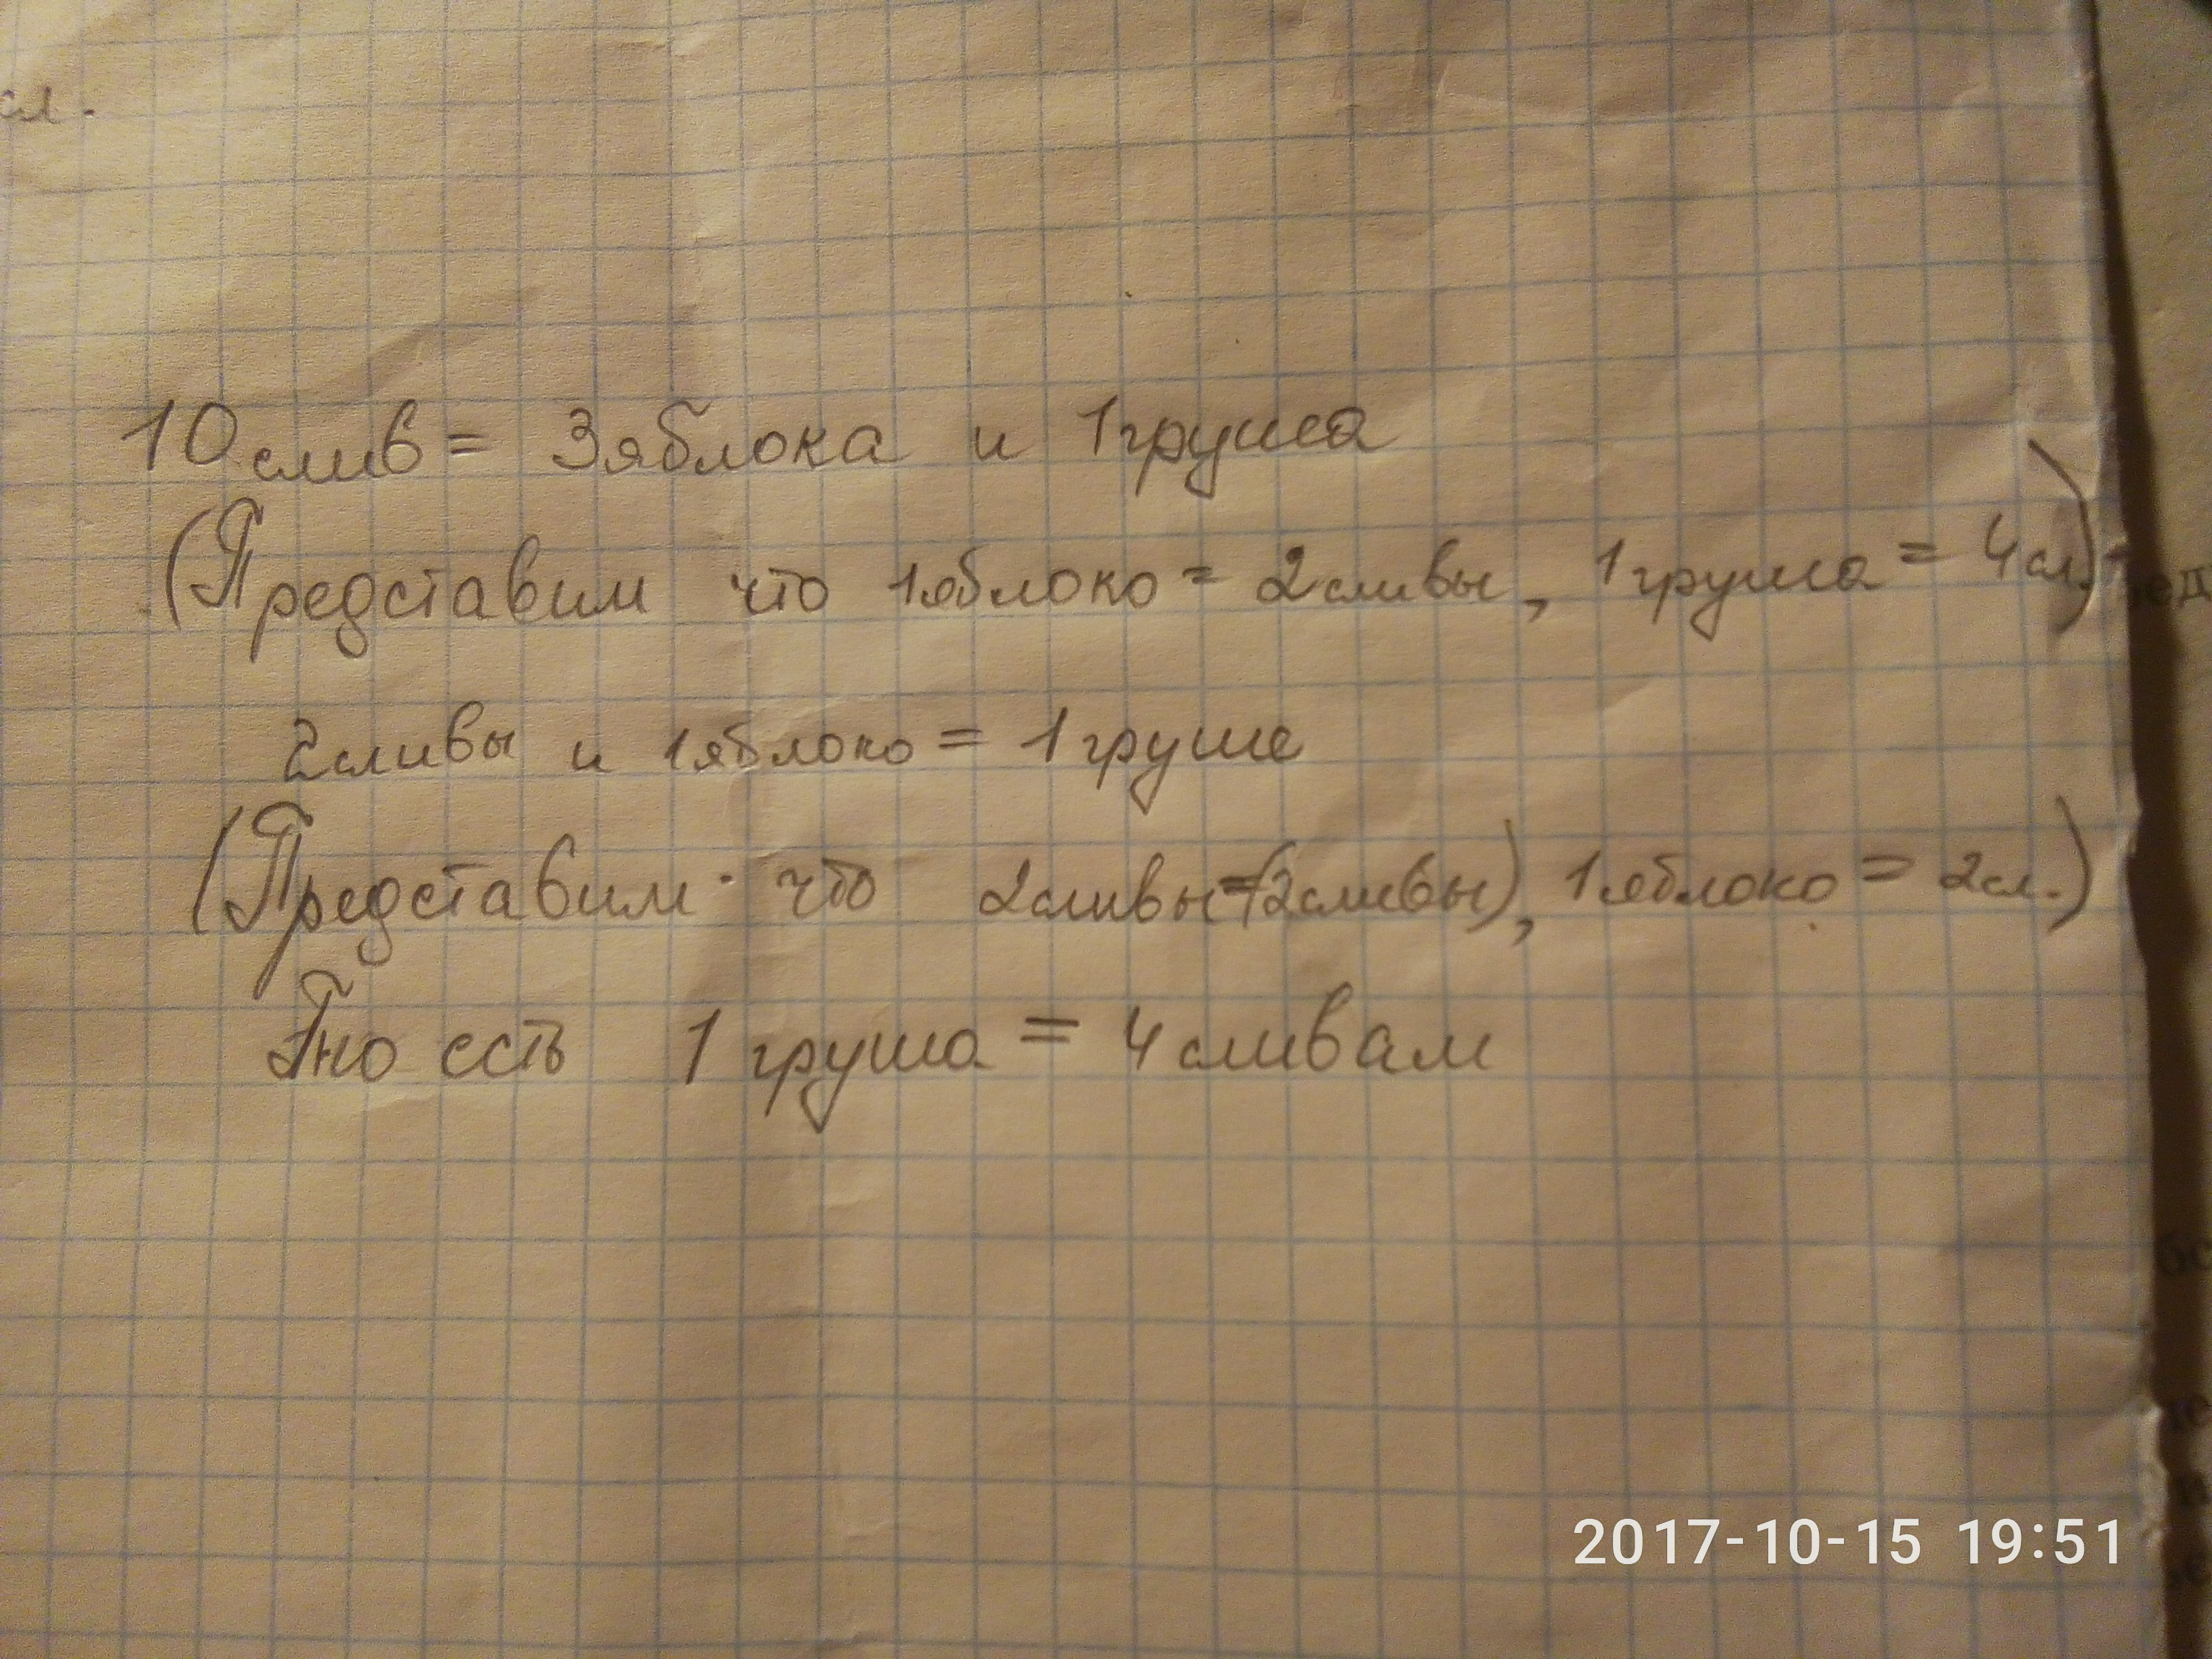 сл.
10 слив = 3 яблока и 1 груша
(Представим что 1 яблоко = 2 сливы, 1 груша = 4 сл.)
2 сливы и 1 яблоко = 1 груше
(Представим что 2 сливы = (2 сливы), 1 яблоко = 2 сл.)
То есть 1 груша = 4 сливам
2017-10-15 19:51